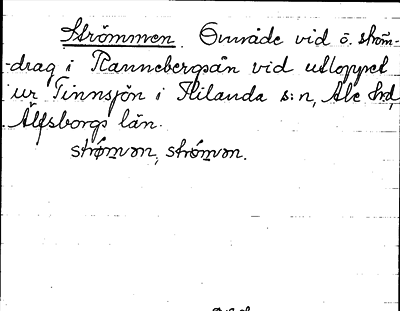 Strömmen. Område vid ö. ström-
drag i Rannebergsån vid utloppet
ur Tinnsjön i Skilanda s:n, Ale hd,
Älfsborgs län.
strǿmən, strǿmən.